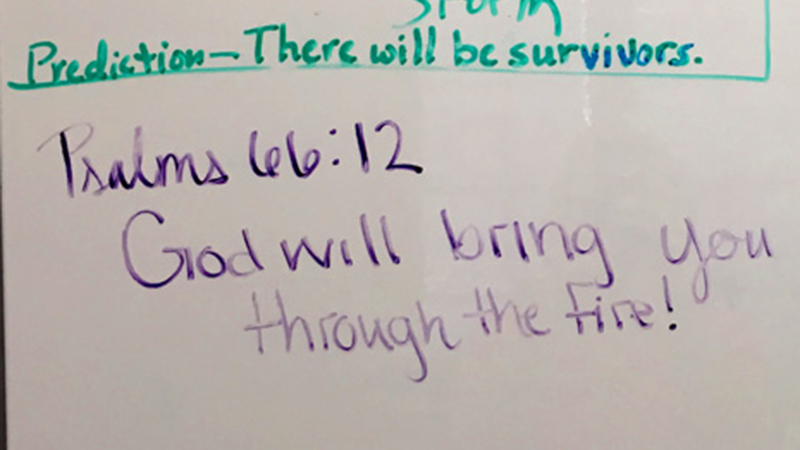 Storm
Prediction—There will be survivors.
Psalms 66:12
God will bring you
through the fire!